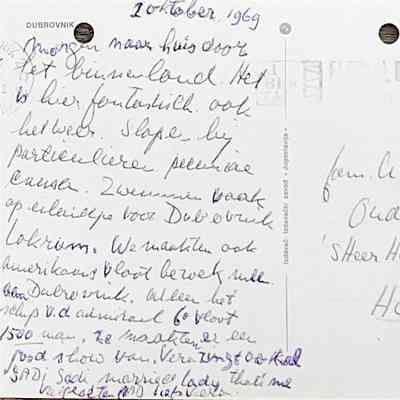 DUBROVNIK
1 oktober 1969
Morgen naar huis door
het binnenland. Het
is hier fantastisch. ook
het weer. Slapen bij
particulieren pecuniae
causa. Zwemmen vaak
op eilandje voor Dubrovnik
Lokrum. We maakten ook
amerikaans vlootbezoek mee
van Dubrovnik. Alleen het
schip v.d admiraal 6e vloot
1500 man. Ze maakten er een
good show van. Vera zingt
SADi Sadi married lady, that's me
fam.
Oud
's Heer H